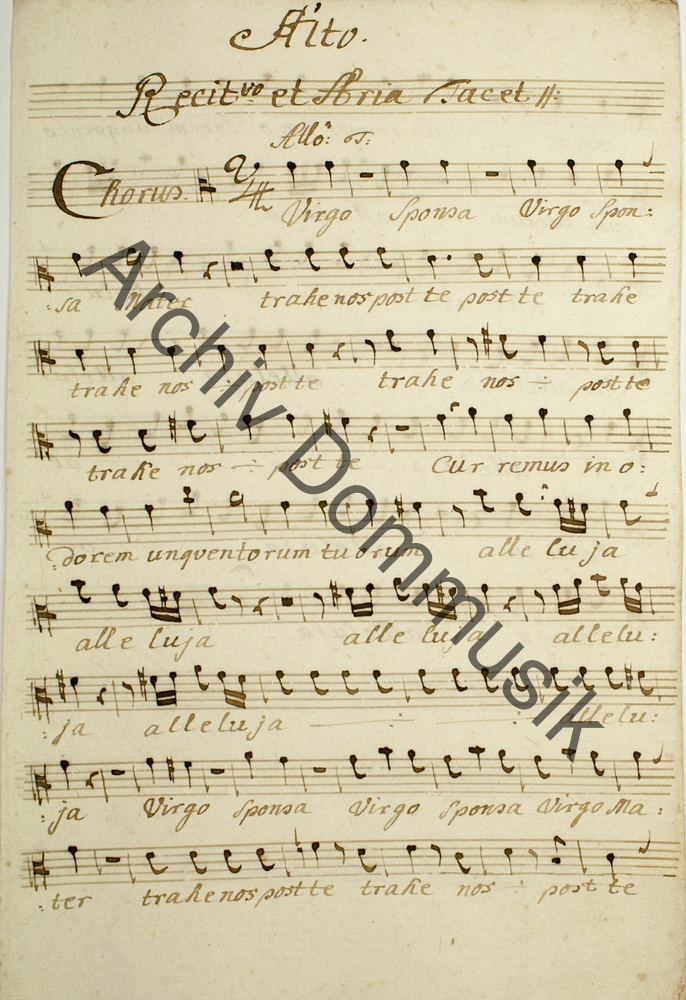 Alto.
Recit:vo et Aria Tacet
Allo:
Chorus. 2/4
Virgo Sponsa Virgo Spon:
:sa Mater trahe nos post te post te trahe
trahe nos ÷ post te trahe nos ÷ post te
trahe nos ÷ post te Curremus in o:
:dorem unqventorum tuorum alleluja
alleluja alleluja allelu:
:ja alleluja ÷ : allelu:
:ja Virgo Sponsa Virgo Sponsa Virgo Ma:
:ter trahe nos post te trahe nos ÷ post te
Archiv Dommusik